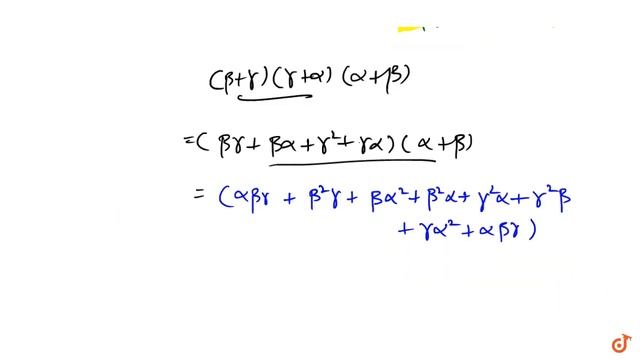 (β+γ)(γ+α)(α+β)
=(βγ+βα+γ²+γα)(α+β)
= (αβγ + β²γ + βα²+β²α+γ²α+γ²β
+ γα²+αβγ)